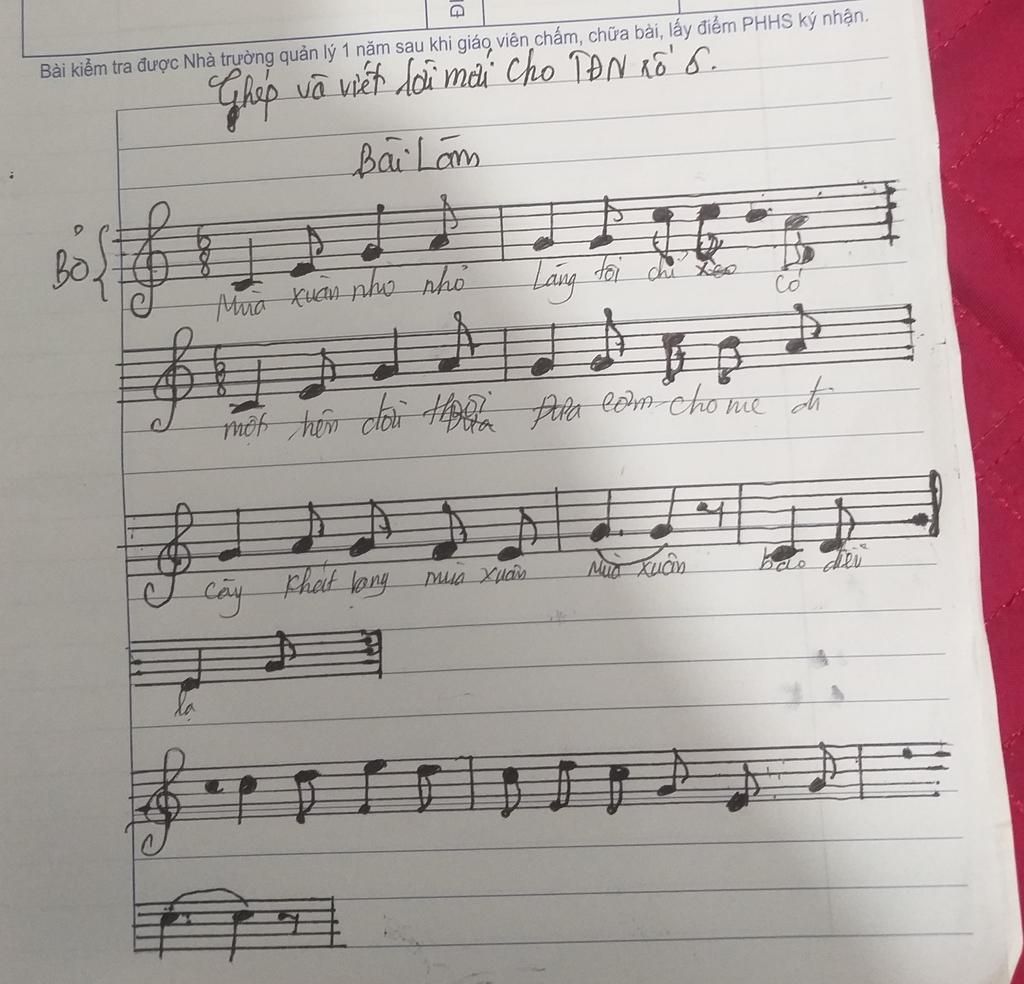 Bài kiểm tra được Nhà trường quản lý 1 năm sau khi giáo viên chấm, chữa bài, lấy điểm PHHS ký nhận.
Ghép và viết lời mới cho TĐN số 6.
Bài Làm
Bỏ
Mùa xuân nho nhỏ Làng tôi có
một hòn đồi cơm cho mẹ đi
cây khát mùa xuân Mùa xuân bao điều
lạ